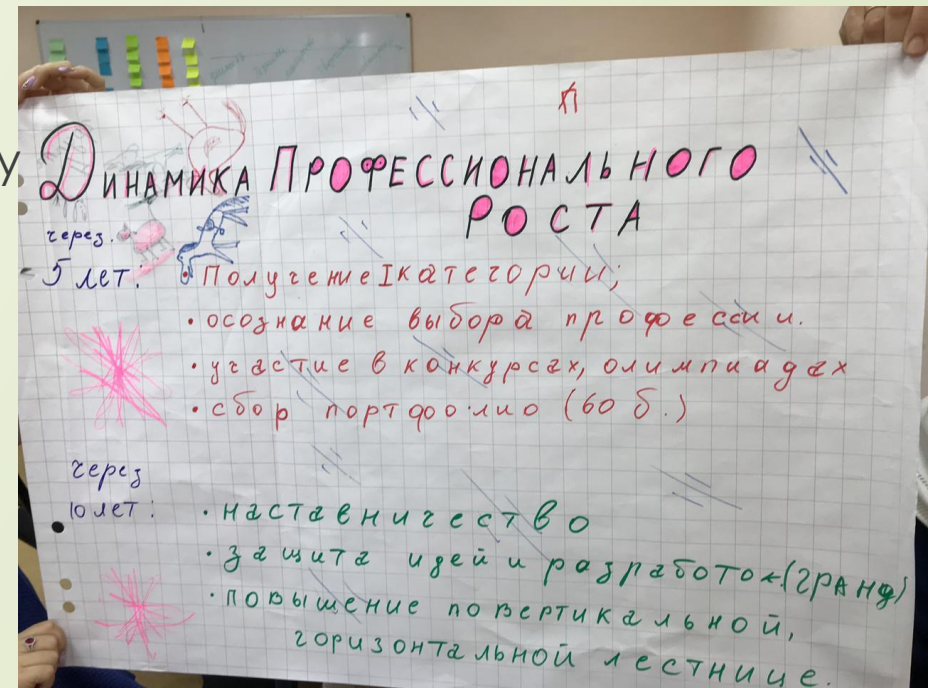 у
П
Динамика Профессионального
Роста
через.
5 лет:
• Получение I категории;
• осознание выбора профессии.
• участие в конкурсах, олимпиадах
• сбор портфолио (60 б.)
через
10 лет:
• наставничество
• защита идей и разработок (гранд)
• повышение по вертикальной,
горизонтальной лестнице.